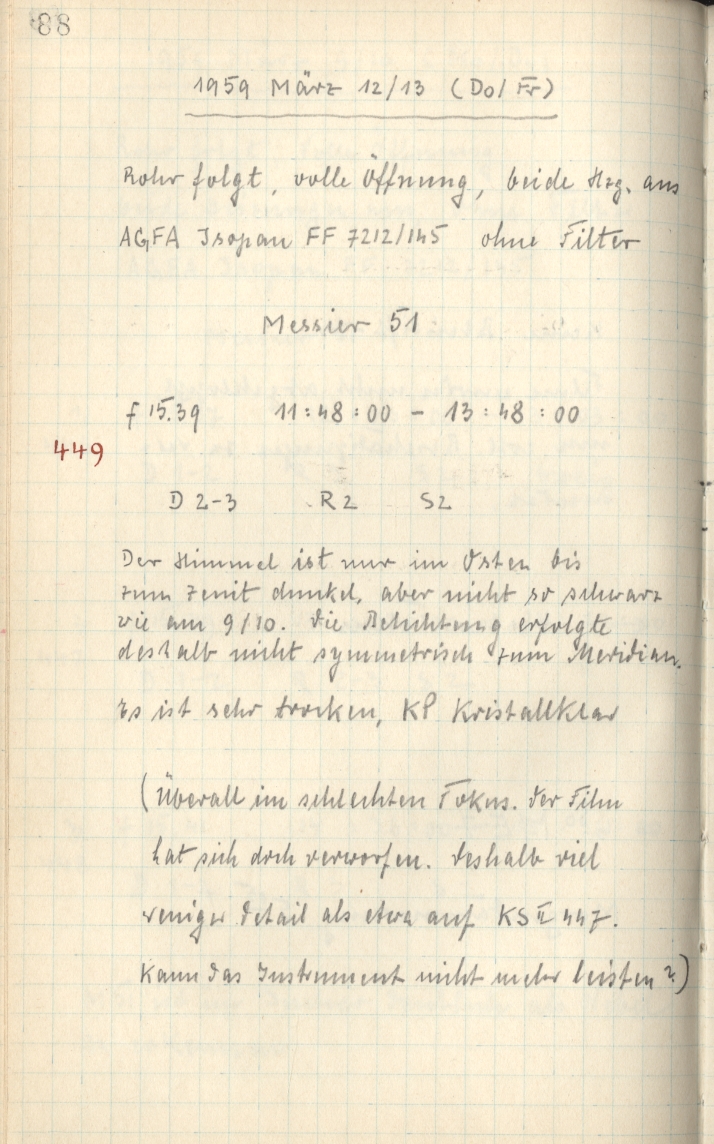 88
1959 März 12/13 (Do/Fr)
Rohr folgt, volle Öffnung, beide Hzg. aus
AGFA Isopan FF 7212/145 ohne Filter
Messier 51
f 15.39 11:48:00 – 13:48:00
449
D 2-3 R 2 S 2
Der Himmel ist nur im Osten bis
zum Zenit dunkel, aber nicht so schwarz
wie am 9/10. Die Belichtung erfolgte
deshalb nicht symmetrisch zum Meridian.
Es ist sehr trocken, KP Kristallklar
(Überall im schlechten Fokus. Der Film
hat sich doch verworfen. Deshalb viel
weniger Detail als etwa auf KS II 447.
Kann das Instrument nicht mehr leisten?)